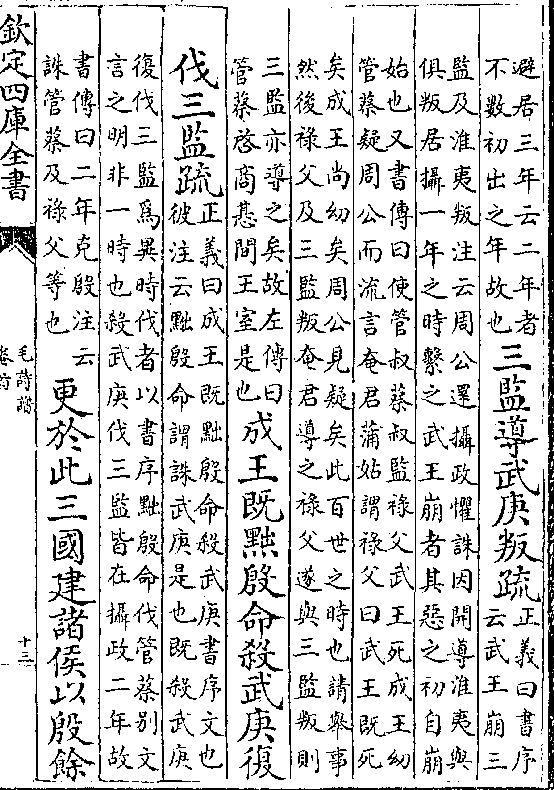 避居三年云二年者
不數初出之年故也
三監導武庚叛疏
正義曰書序
云武王崩三
監及淮夷叛注云周公還攝政懼誅因開導淮夷與
俱叛居攝一年之時繫之武王崩者其惡之初自崩
始也又書傳曰使管叔蔡叔監祿父武王死成王幼
管蔡疑周公而流言奄君蒲姑謂祿父曰武王既死
矣成王尚幼矣周公見疑矣此百世之時也請舉事
然後祿父及三監叛奄君導之祿父遂與三監叛則
三監亦導之矣故左傳曰
管蔡啓商惎間王室是也
成王既黜殷命殺武庚復
伐三監疏
正義曰成王既黜殷命殺武庚書序文也
彼注云黜殷命謂誅武庚是也既殺武庚
復伐三監爲異時伐者以書序黜殷命伐管蔡別文
言之明非一時也殺武庚伐三監皆在攝政二年故
書傳曰二年克殷注云
誅管蔡及祿父等也
更於此三國建諸侯以殷餘
欽定四庫全書
毛詩譜
十三